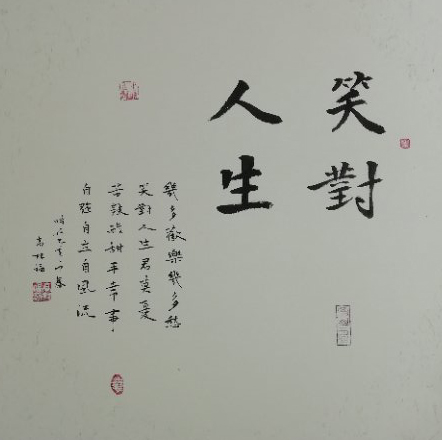 笑對
人生
幾多歡樂幾多愁
笑對人生君莫憂
苦辣酸甜平常事
自強自立自風流